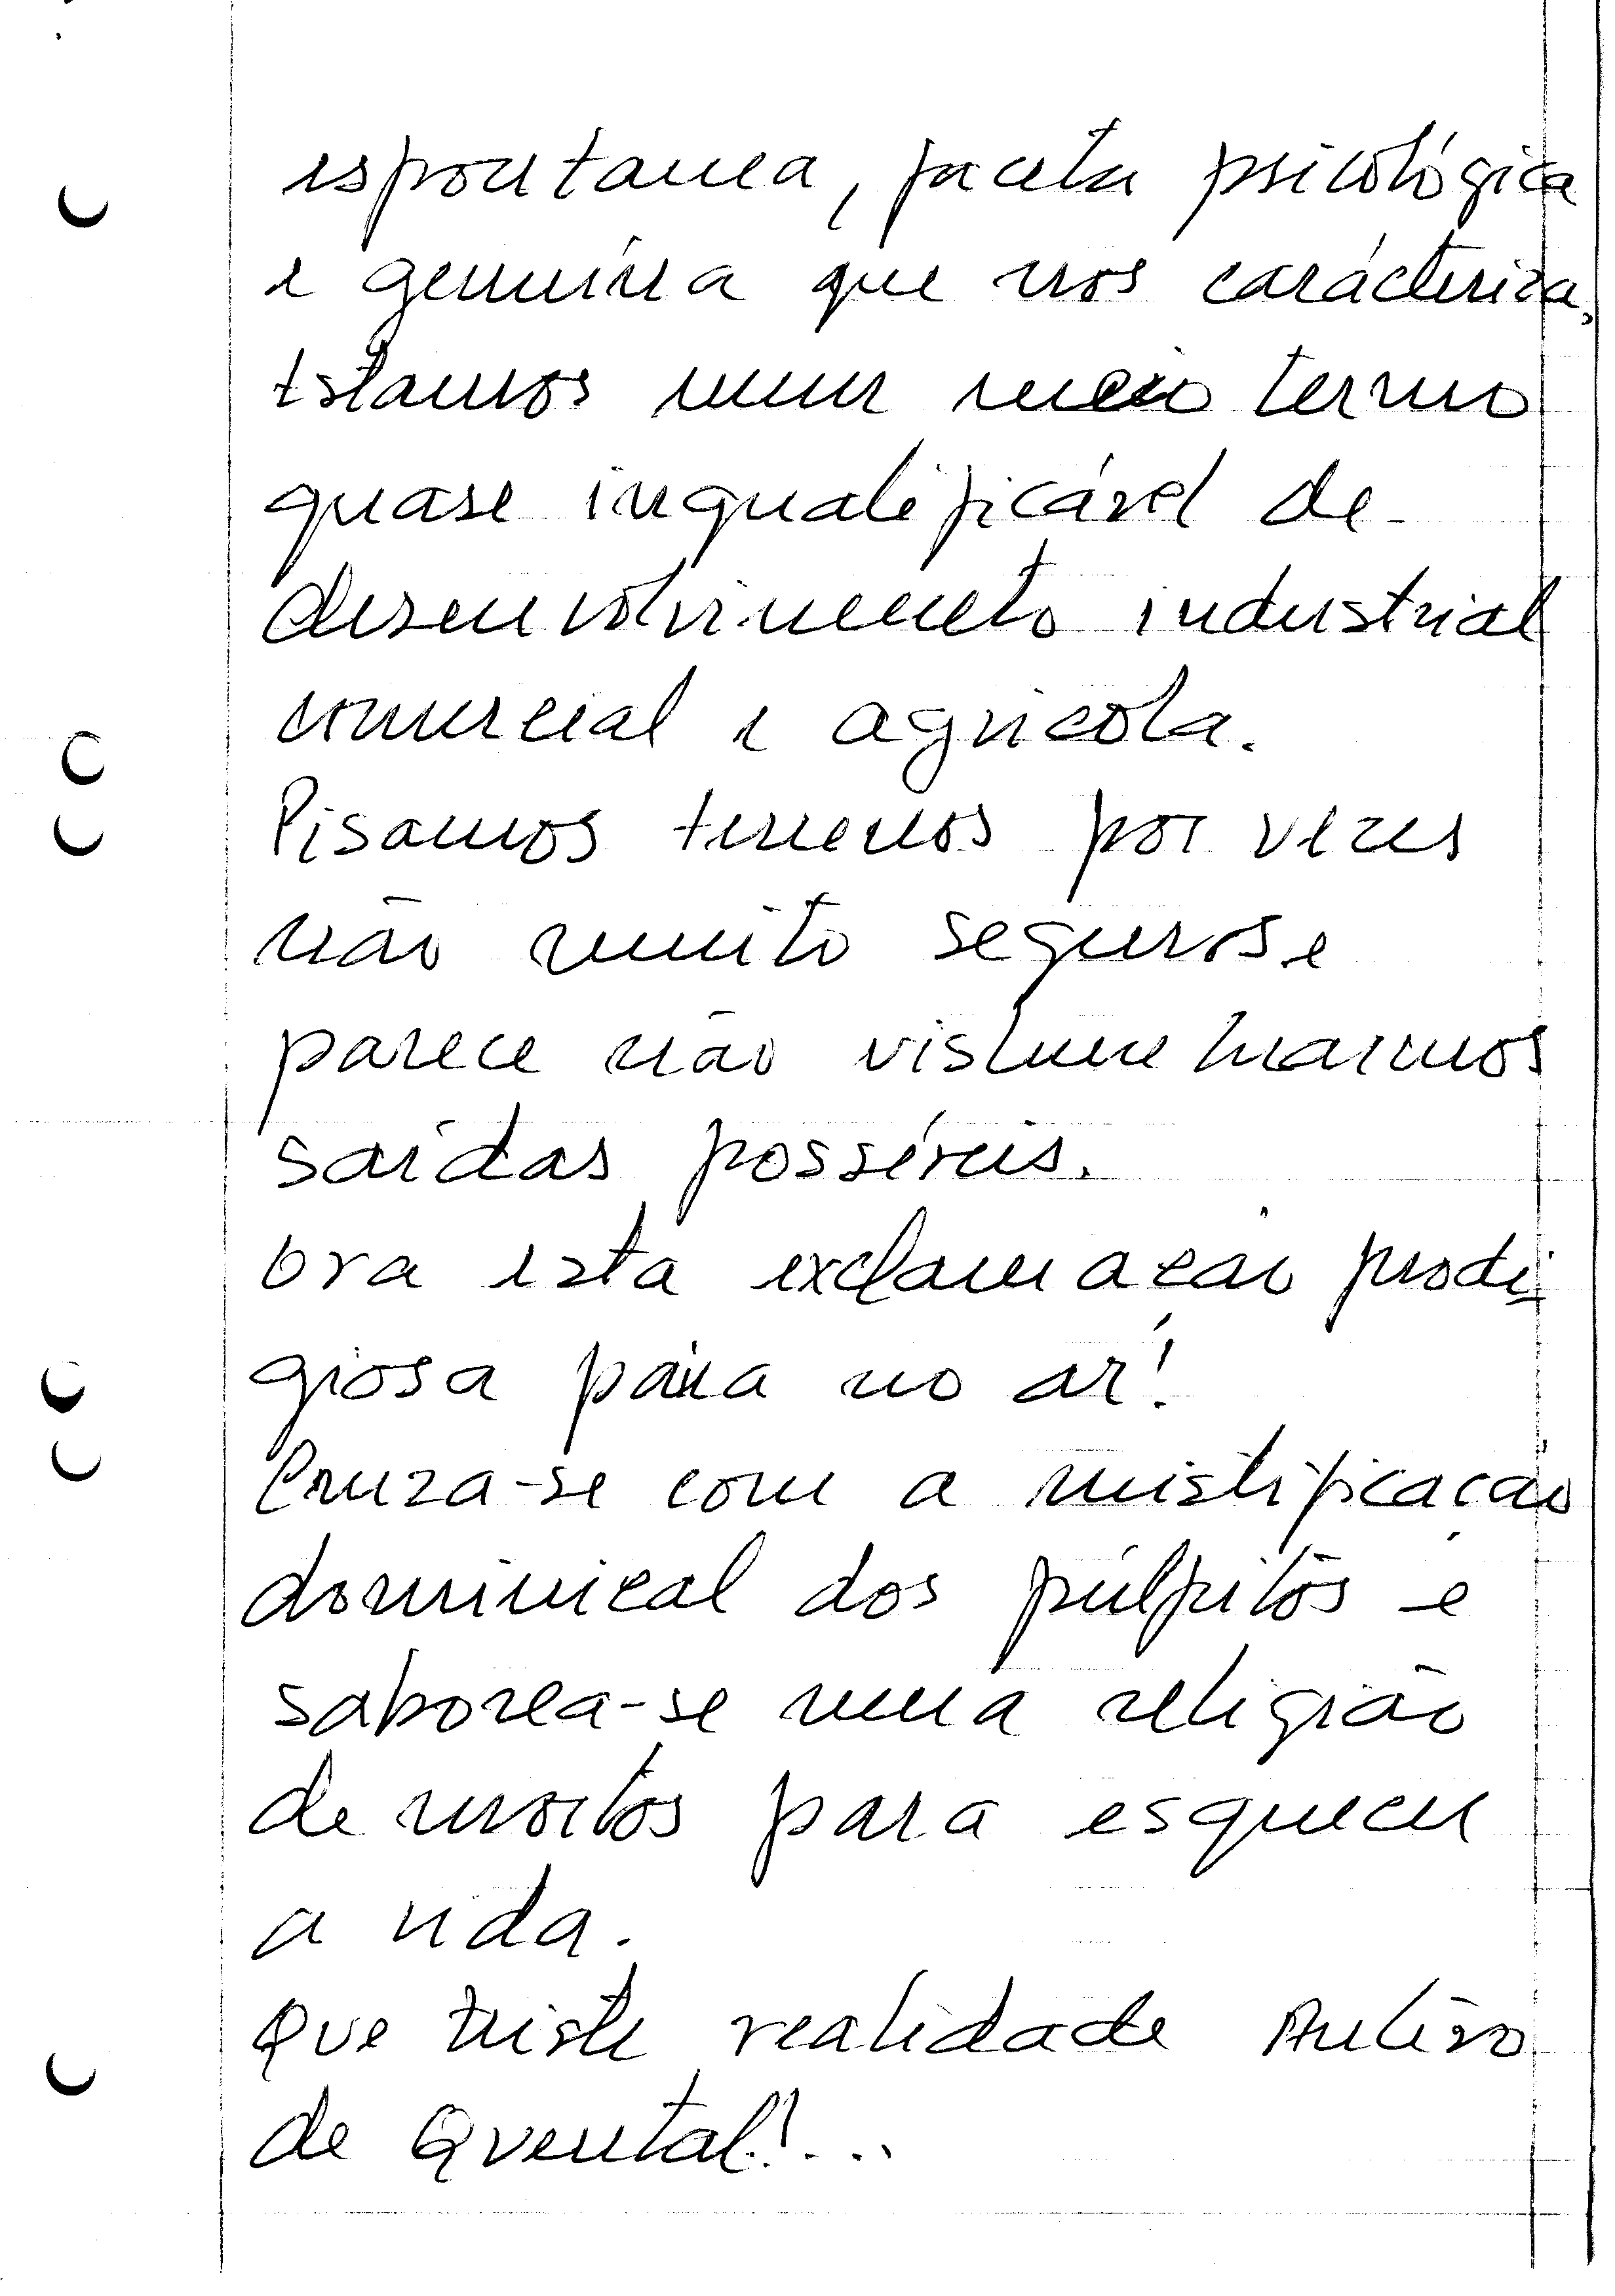 espontanea, faceta psicológica
e genuína que nos carácteriza,
Estamos num meio termo
quase inqualificável de
desenvolvimento industrial
comercial e agricola.
Pisamos terrenos por vezes
não muito seguros e
parece não vislumbrarmos
saídas possíveis.
Ora esta exclamação prodi-
giosa paira no ar!
Cruza-se com a mistificação
dominical dos púlpitos e
saborea-se uma religião
de mortos para esquecer
a vida.
Que triste realidade Antero
de Quental!...